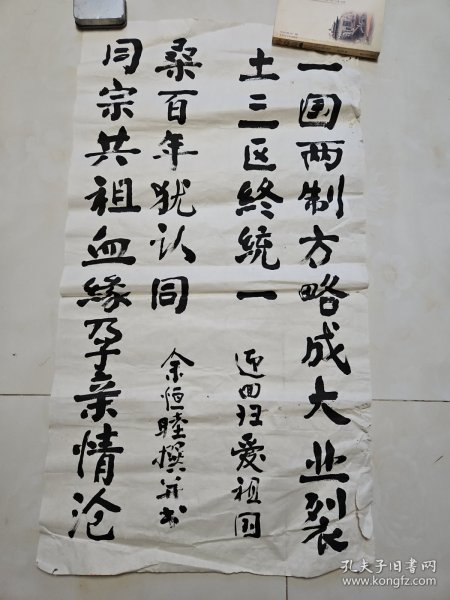 一国两制方略成大业裂
土三区終統一
迎回归愛祖国
同宗共祖血緣孕亲情沧
桑百年犹认同
余恒睦撰并书
孔夫子旧书网
www.kongfz.com